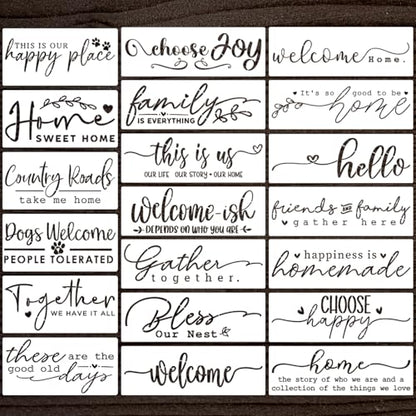 THIS IS OUR
happy place
Home
SWEET HOME
Country Roads
take me home
Dogs Welcome
PEOPLE TOLERATED
Together
WE HAVE IT ALL
these are the
good old days
choose Joy
family
IS EVERYTHING
this is us
OUR LIFE OUR STORY • OUR HOME
Welcome-ish
DEPENDS ON WHO YOU ARE
Gather
together.
Bless
OUR NEST
welcome
welcome
Home.
It's so good to be
home
hello
friends and family
gather here
happiness is
homemade
CHOOSE
happy
home
the story of who we are and a
collection of the things we love